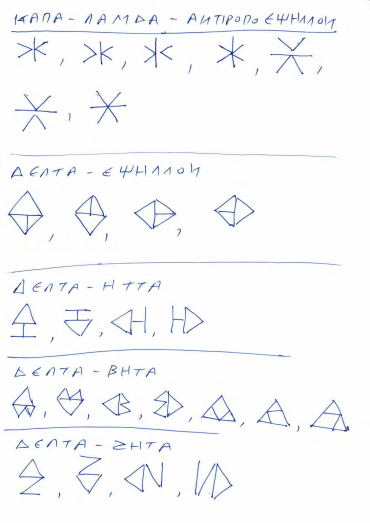 ΚΑΠΑ - ΛΑΜΔΑ - ΑΝΤΙΡΟΠΟ ΕΨΗΛΛΟΝ
ΔΕΛΤΑ - ΕΨΗΛΛΟΝ
ΔΕΛΤΑ - ΗΤΤΑ
ΔΕΛΤΑ - ΒΗΤΑ
ΔΕΛΤΑ - ΖΗΤΑ